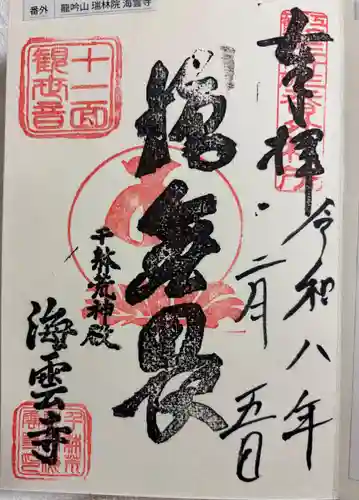 番外 龍吟山 瑞林院 海雲寺
奉拝
令和八年
二月五日
十一面
観世音
施無畏
千躰荒神殿
海雲寺